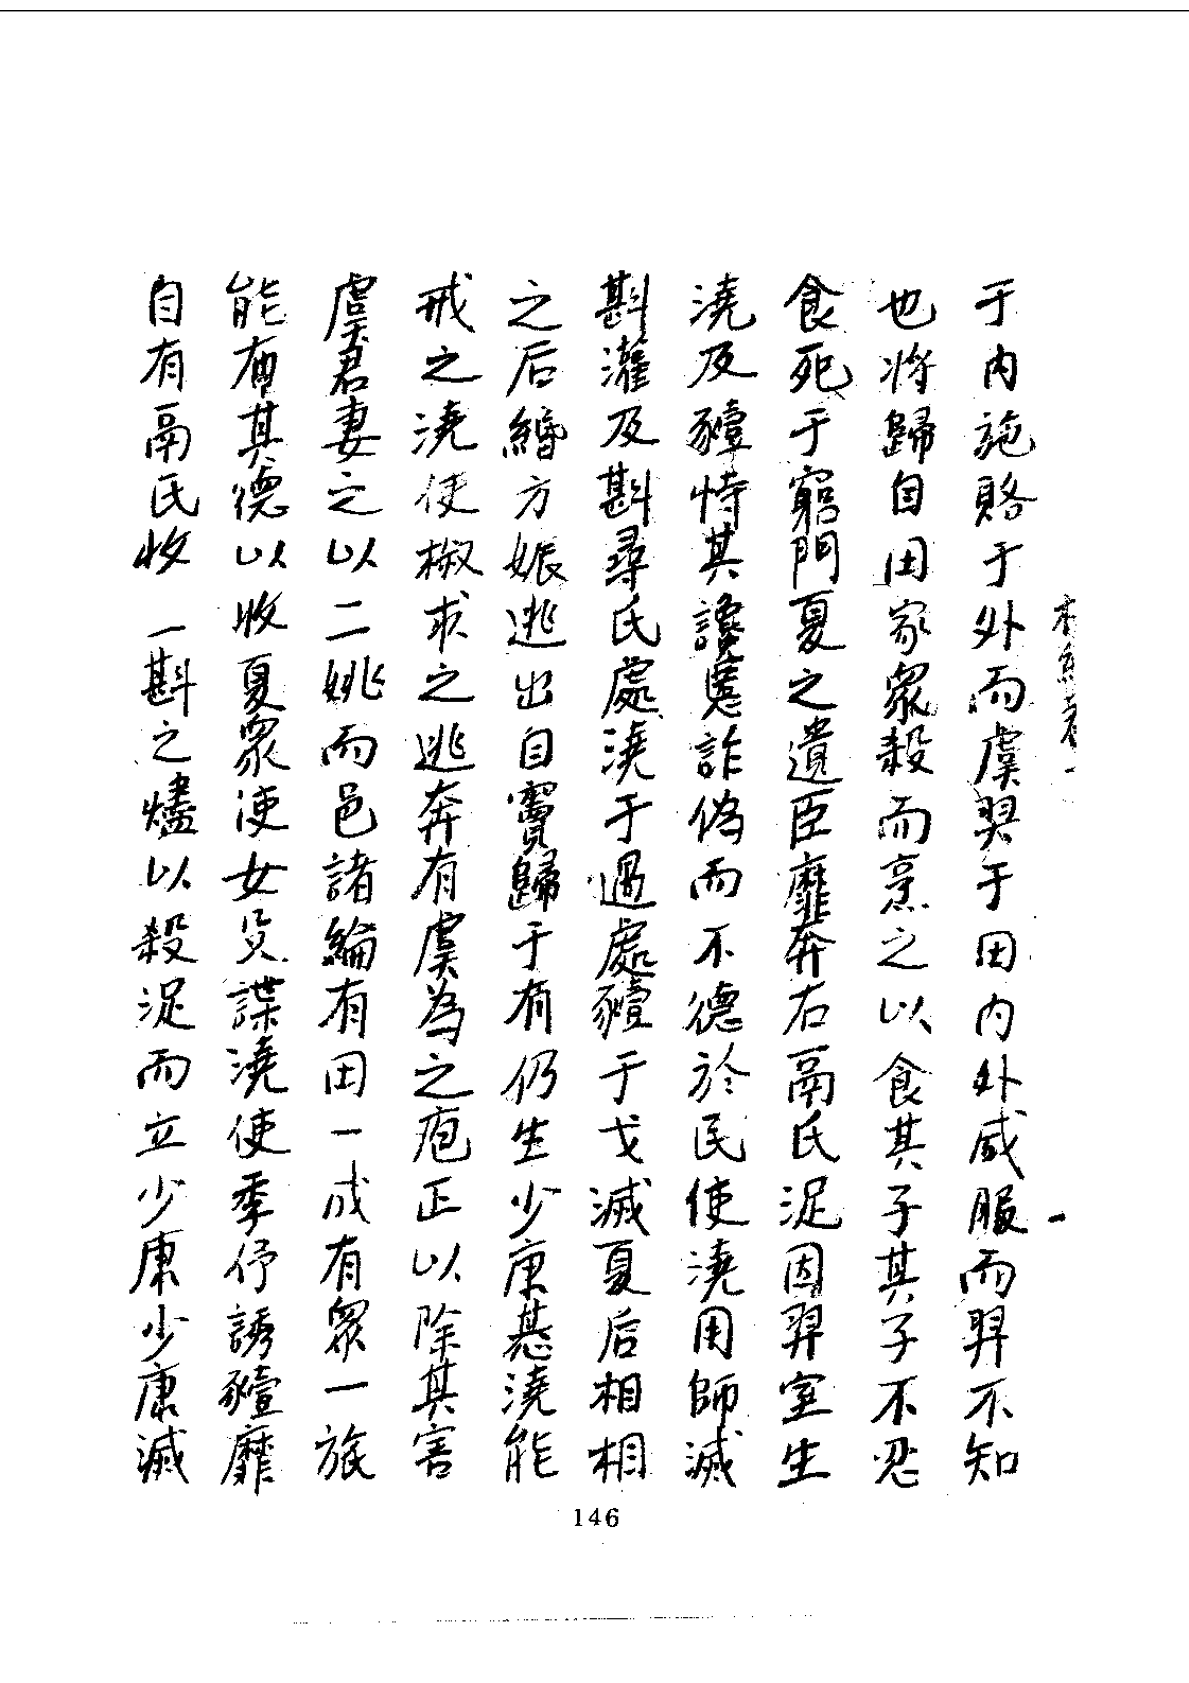 于内施賂于外而虞羿于田内外咸服而羿不知
也將歸自田家眾殺而烹之以食其子其子不忍
食死于窮門夏之遺臣靡奔有鬲氏浞因羿室生
澆及豷恃其讒慝詐偽而不德於民使澆用師滅
斟灌及斟尋氏處澆于過處豷于戈滅夏后相相
之后緡方娠逃出自竇歸于有仍生少康惎澆能
戒之澆使椒求之逃奔有虞為之庖正以除其害
虞君妻之以二姚而邑諸綸有田一成有眾一旅
能布其德以收夏眾使女艾諜澆使季伃誘豷靡
自有鬲氏收一斟之燼以殺浞而立少康少康滅
146